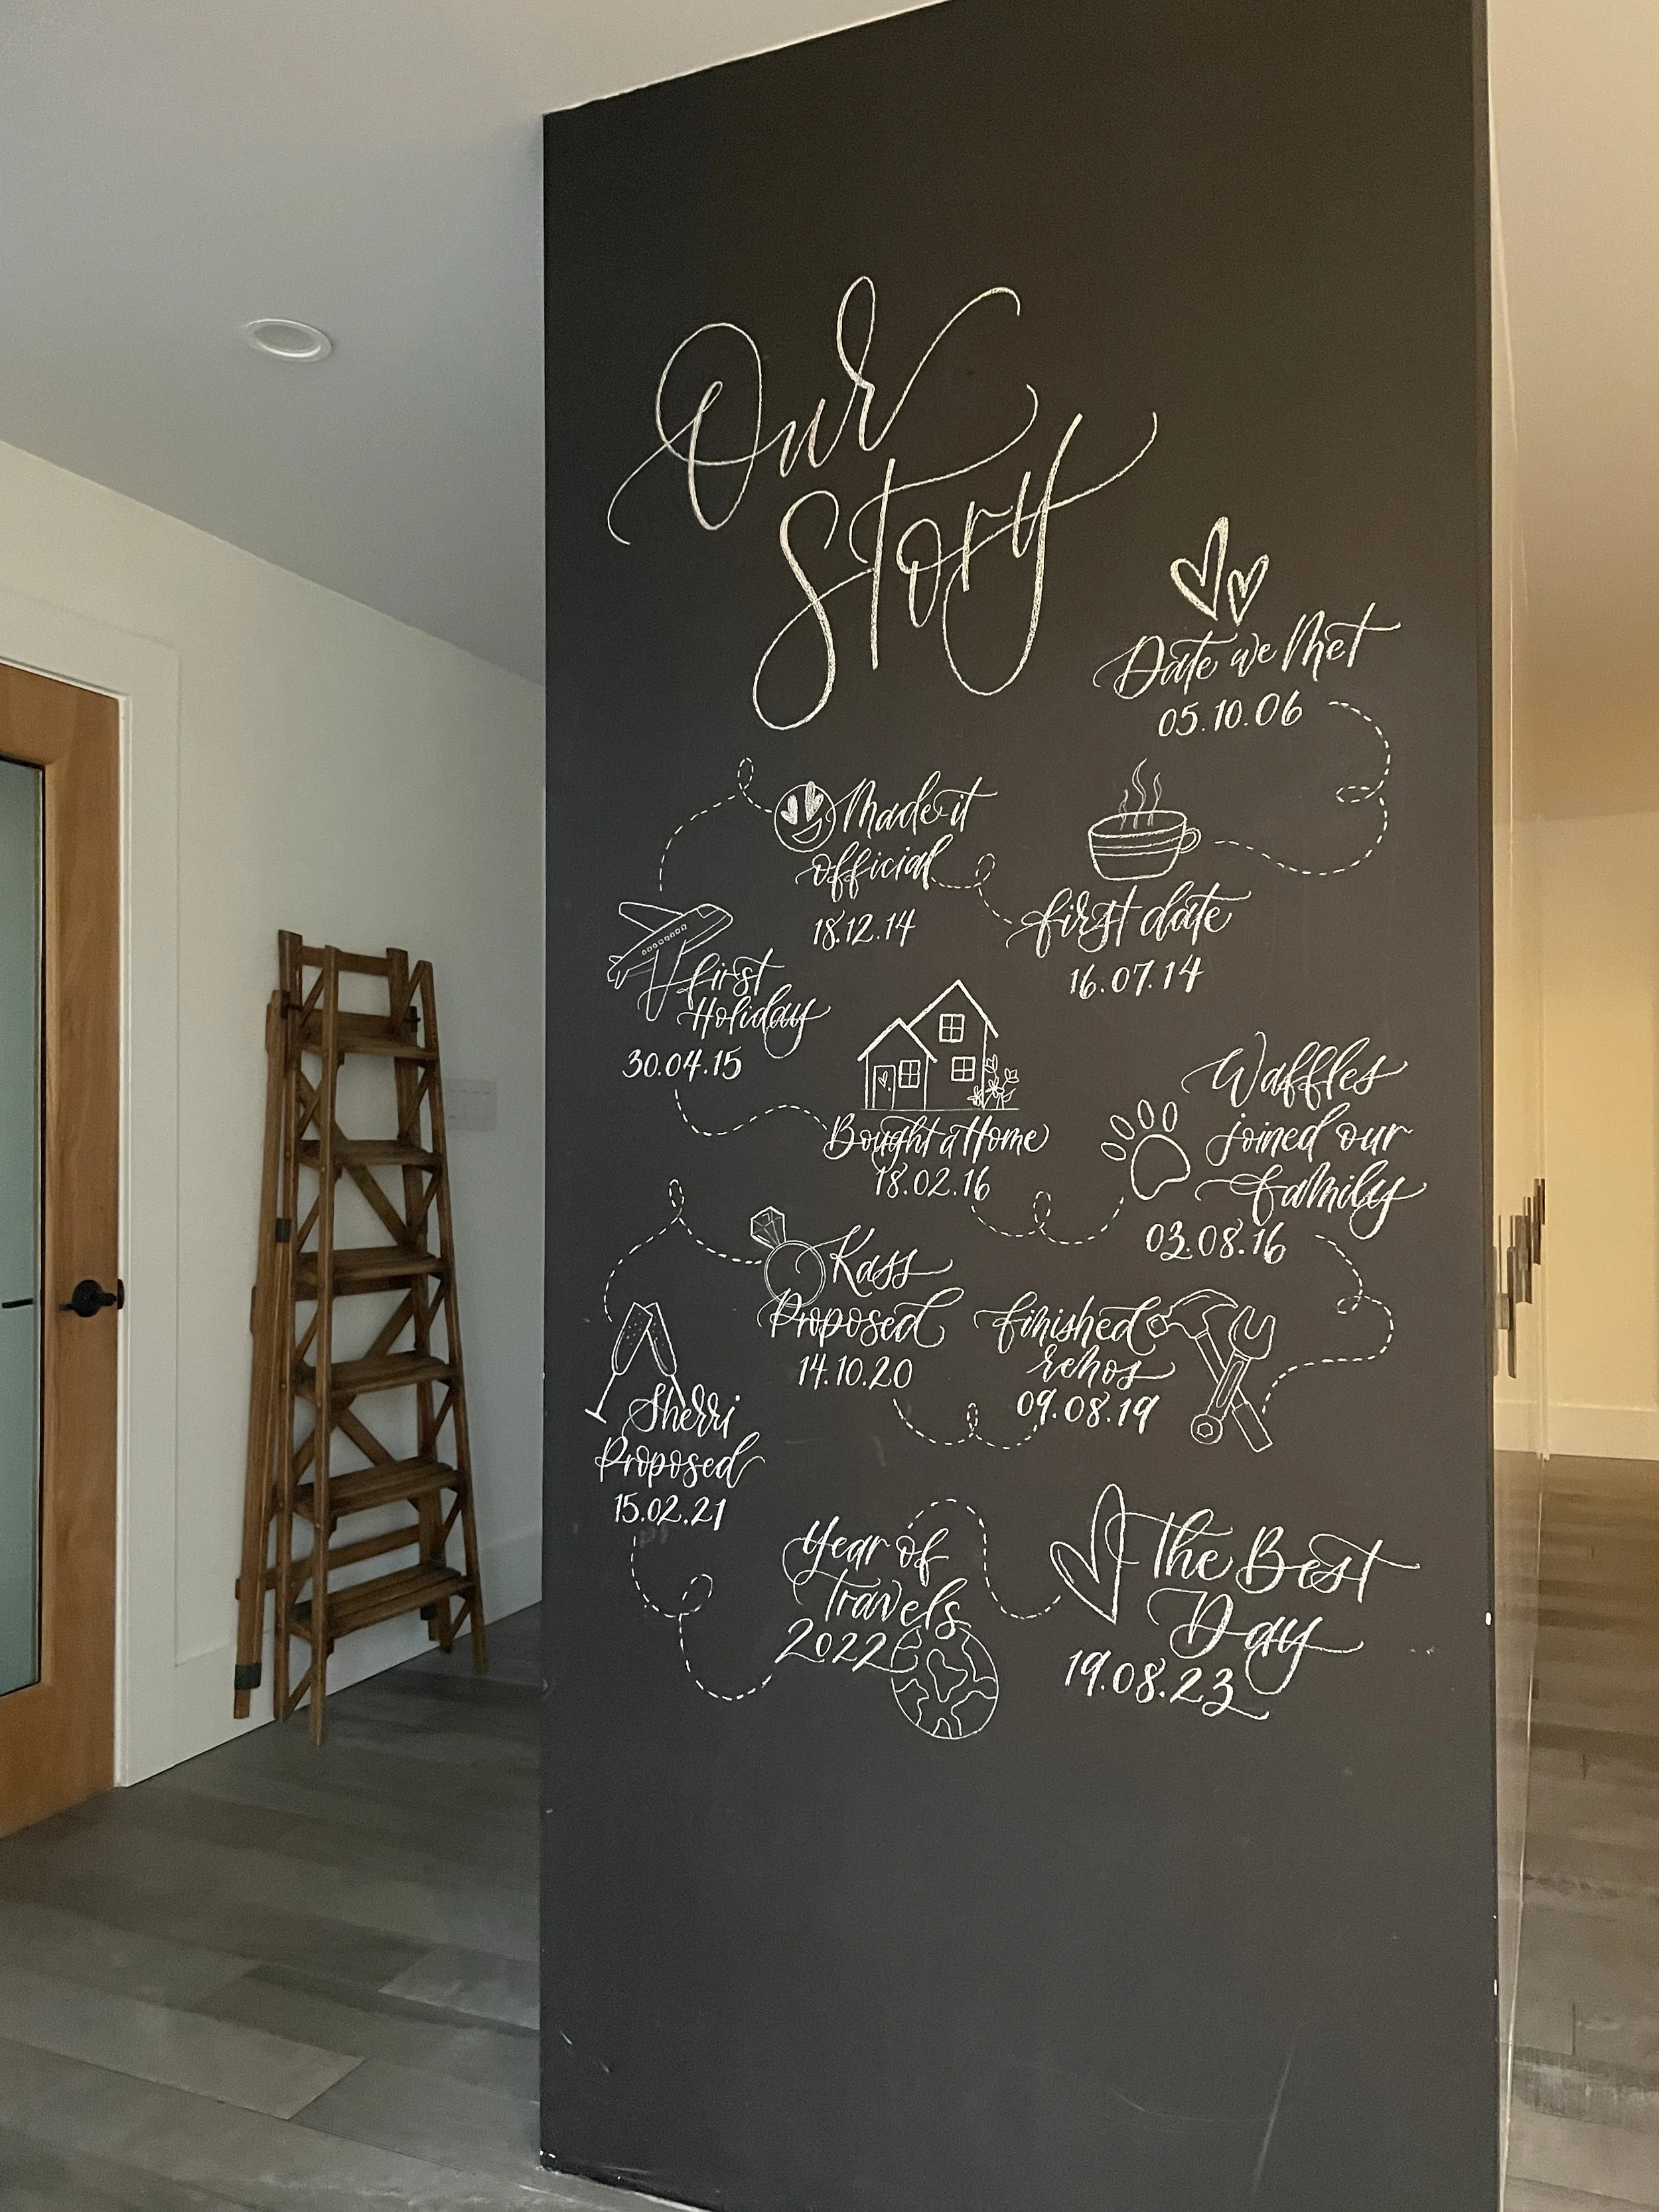 Our
Story
Date we Met
05.10.06
first date
16.07.14
Made it
official
18.12.14
first
Holiday
30.04.15
Bought a Home
18.02.16
Waffles
joined our
family
03.08.16
finished
renos
09.08.19
Kass
Proposed
14.10.20
Sherri
Proposed
15.02.21
Year of
Travels
2022
The Best
Day
19.08.23